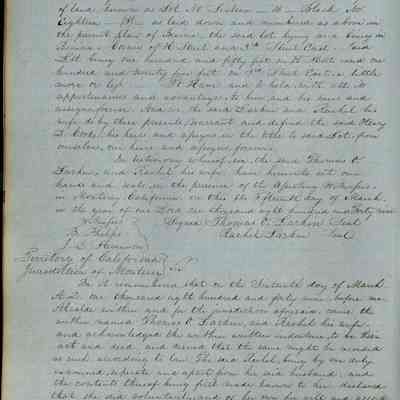 of land, known as Lot No
Eighteen as laid down and numbered as above in
the parent plan of Benicia, the said lot lying and being in
Benicia, Corner of H Street and 3rd Street East. Said
Lot being one hundred and fifty feet on H Street and one
hundred and twenty five feet on 3rd Street East, a little
more or less. To Have and to hold with all its
appurtenances and advantages to him and his heirs and
assigns forever. And we the said Larkin and Rachel his
wife do by these presents, warrant and defend the said Henry
D. Cooke, his heirs and assigns, in the title to said Lot, from
ourselves, our heirs and assigns forever.
In testimony whereof, we, the said Thomas O.
Larkin, and Rachel his wife, have hereunto set our
hands and seals, in the presence of the
in Monterey California on this the day of March,
in the year of our Lord one thousand eight hundred and Forty nine
Signed Thomas O. Larkin Seal
Rachel Larkin Seal
Territory of California
Jurisdiction of Monterey
Be it remembered that on the Sixteenth day of March
A.D. one thousand eight hundred and forty nine, before me
Alcalde within and for the jurisdiction aforesaid, came the
within named Thomas O. Larkin, and Rachel his wife,
and acknowledged the within written indenture, to be their
act and deed, and desired that the same might be recorded
as such according to law. The said Rachel, being by me duly
examined, separate and apart from her said husband, and
the contents thereof being first made known to her declared
that she did voluntarily and of her own free will and accord